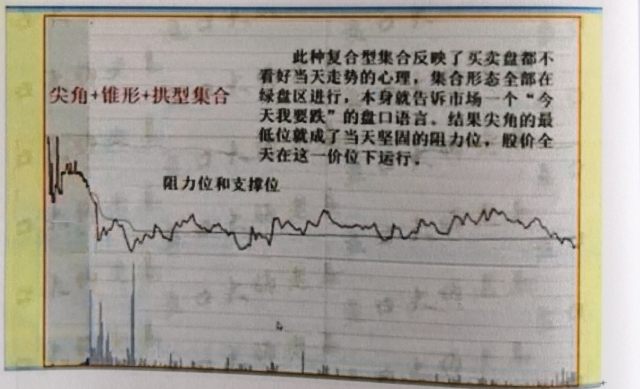 此种复合型集合反映了买卖盘都不
看好当天走势的心理，集合形态全部在
绿盘区进行，本身就告诉市场一个“今
天我要跌”的盘口语言。结果尖角的最
低位就成了当天坚固的阻力位，股价全
天在这一价位下运行。
尖角+锥形+拱型集合
阻力位和支撑位